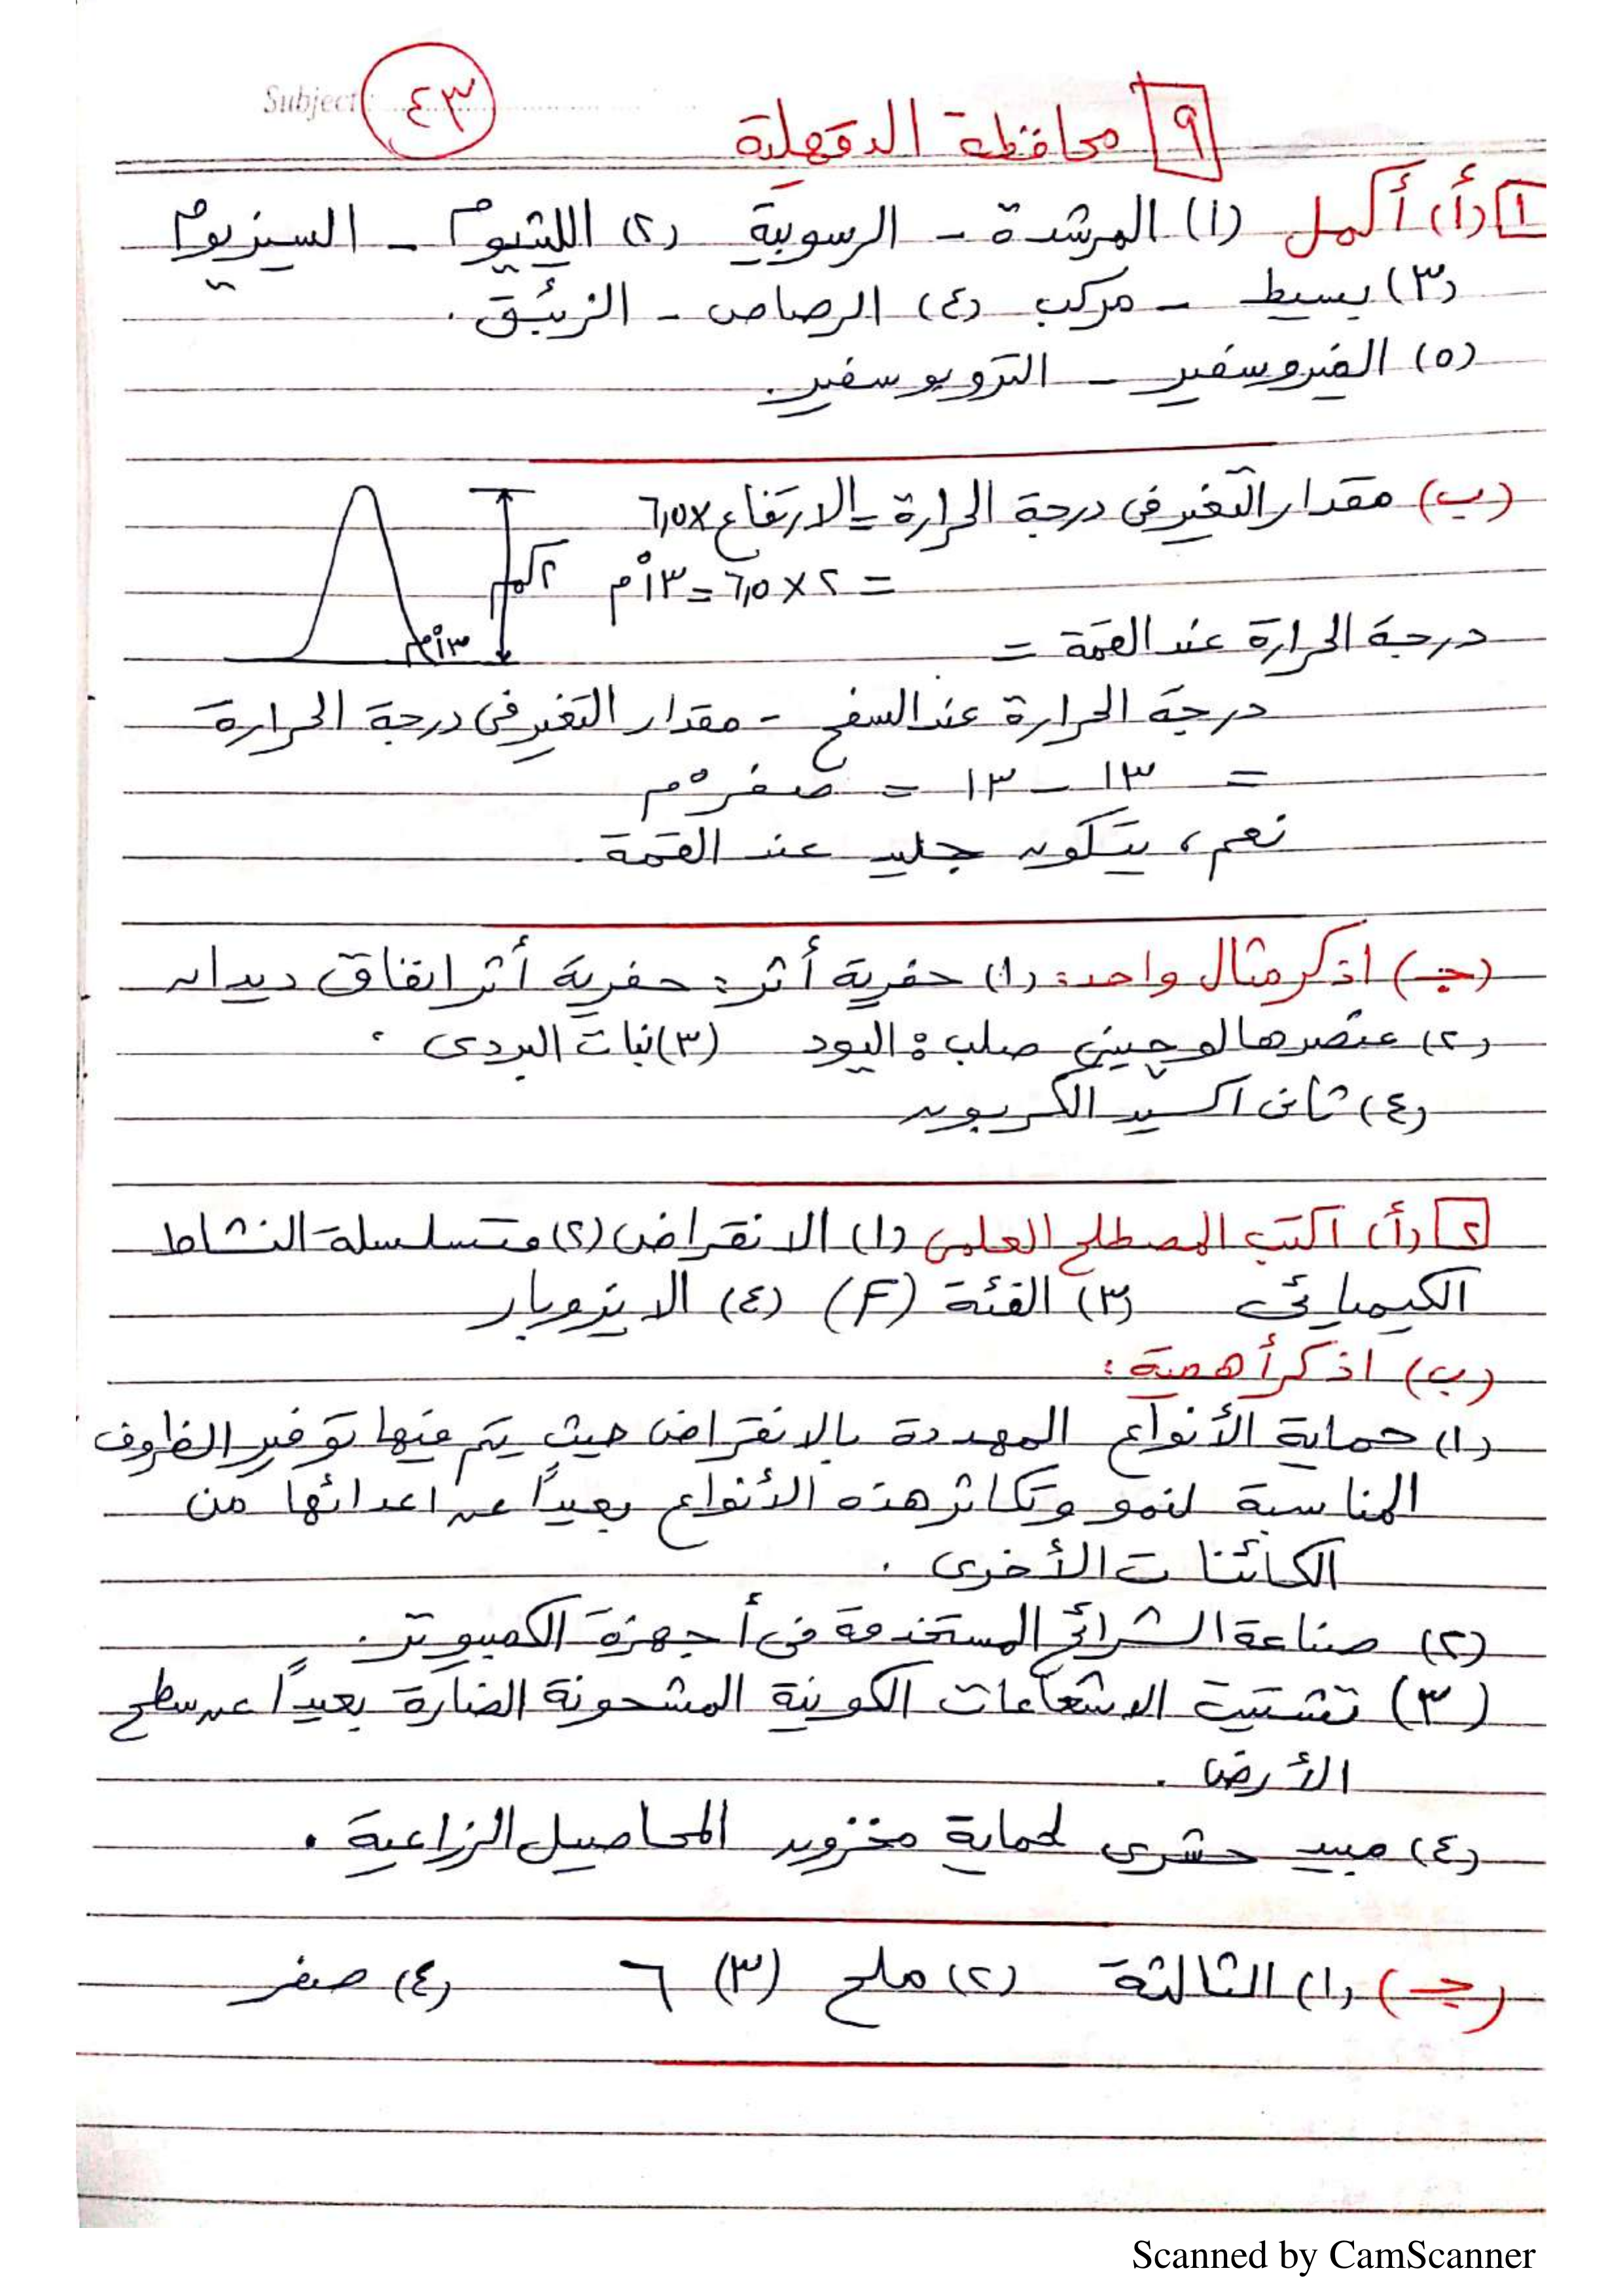 Subject: ٤٣
٩ محافظة الدقهلية
١ (أ) أكمل (١) المرشدة - الرسوبية (٢) الليثيوم - السيزيوم
(٣) بسيط - مركب (٤) الرصاص - الزئبق .
(٥) الفيروسفير - التروبوسفير .
(ب) مقدار التغير فى درجة الحرارة = الارتفاع × ٦,٥
= ٢ × ٦,٥ = ١٣°م
٢كم
١٣°م
درجة الحرارة عند القمة =
درجة الحرارة عند السفح - مقدار التغير فى درجة الحرارة
= ١٣ - ١٣ = صفر°م
نعم ، يتكون جليد عند القمة .
(جـ) اذكر مثال واحد : (١) حفرية أثر : حفرية أثر انفاق ديدان
(٢) عنصر هالوجينى صلب : اليود (٣) نبات البردى .
(٤) ثانى اكسيد الكربون
٢ (أ) اكتب المصطلح العلمى (١) الانقراض (٢) متسلسلة النشاط
الكيميائى (٣) الفئة (F) (٤) الايزوبار
(ب) اذكر أهمية :
(١) حماية الأنواع المهددة بالانقراض حيث يتم فيها توفير الظروف
المناسبة لنمو وتكاثر هذه الأنواع بعيداً عن اعدائها من
الكائنات الأخرى .
(٢) صناعة الشرائح المستخدمة فى أجهزة الكمبيوتر .
(٣) تشتيت الاشعاعات الكونية المشحونة الضارة بعيداً عن سطح
الأرض .
(٤) مبيد حشرى لحماية مخزون المحاصيل الزراعية .
(جـ) (١) الثالثة (٢) ملح (٣) ٦ (٤) صفر
Scanned by CamScanner